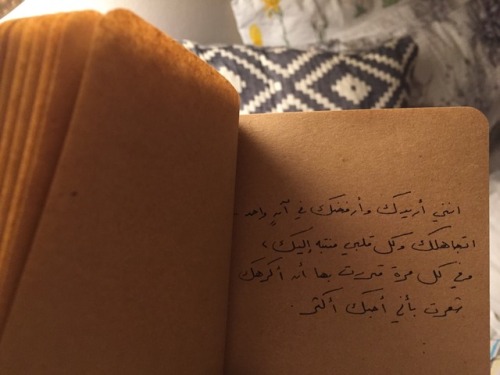 إنني أريدك وأرفضك في آنٍ واحد.
اتجاهلك وكل قلبي منتبه إليك،
وفي كل مرة قررت بها أن أكرهك
شعرت بأني أحبك أكثر.